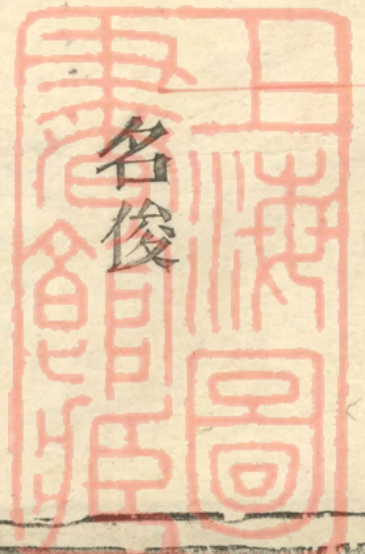 名俊
上海圖
書館藏